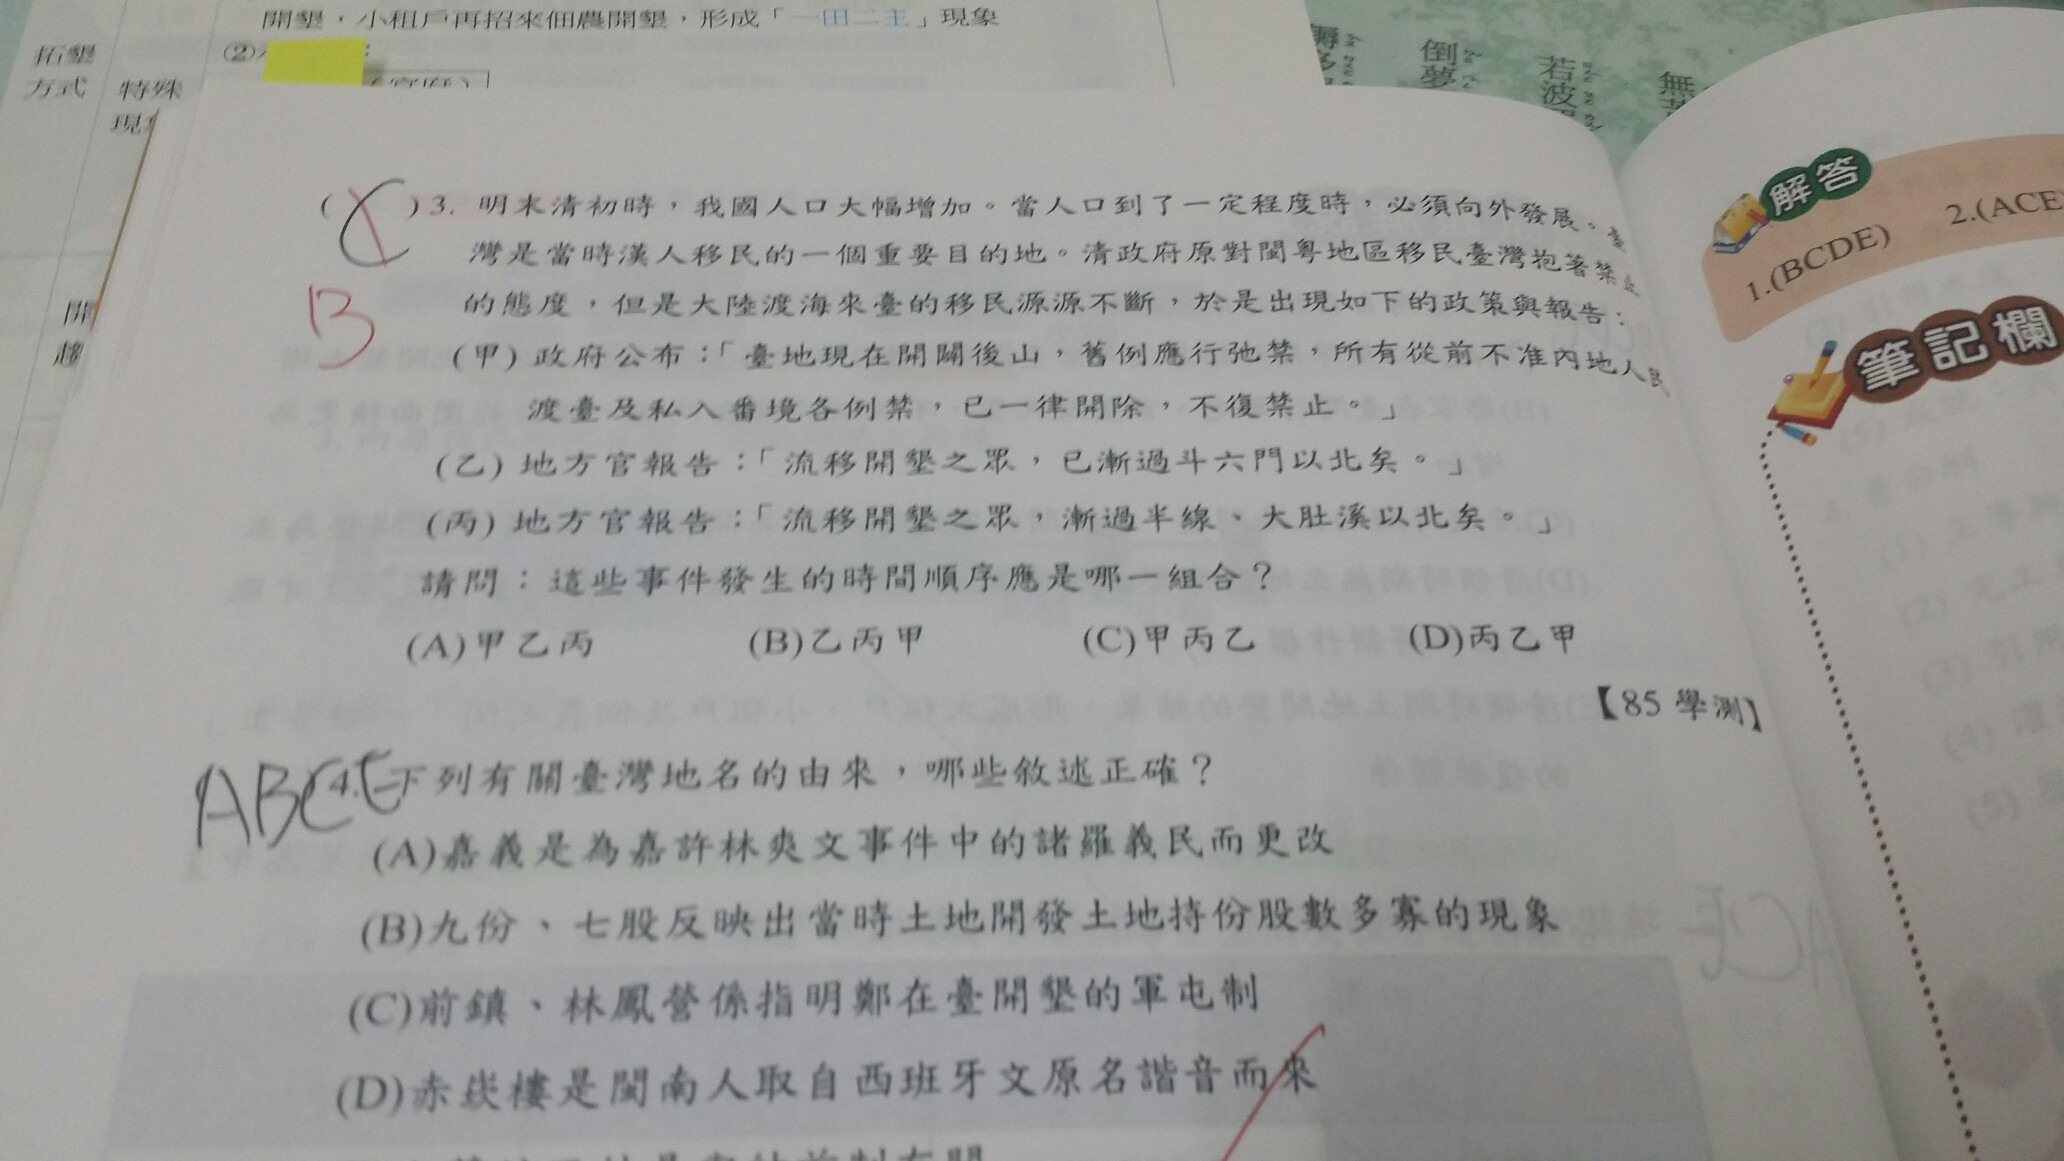 開墾，小租戶再招來佃農開墾，形成「一田二主」現象
②
拓墾
方式
特殊
倒夢
若波
無
( C )3. 明末清初時，我國人口大幅增加。當人口到了一定程度時，必須向外發展。臺
灣是當時漢人移民的一個重要目的地。清政府原對閩粵地區移民臺灣抱著禁止
的態度，但是大陸渡海來臺的移民源源不斷，於是出現如下的政策與報告：
B
(甲) 政府公布：「臺地現在開闢後山，舊例應行弛禁，所有從前不准內地人民
渡臺及私入番境各例禁，已一律開除，不復禁止。」
(乙) 地方官報告：「流移開墾之眾，已漸過斗六門以北矣。」
(丙) 地方官報告：「流移開墾之眾，漸過半線、大肚溪以北矣。」
請問：這些事件發生的時間順序應是哪一組合？
(A)甲乙丙 (B)乙丙甲 (C)甲丙乙 (D)丙乙甲
【85 學測】
ABCE 4. 下列有關臺灣地名的由來，哪些敘述正確？
(A)嘉義是為嘉許林爽文事件中的諸羅義民而更改
(B)九份、七股反映出當時土地開發土地持份股數多寡的現象
(C)前鎮、林鳳營係指明鄭在臺開墾的軍屯制
(D)赤崁樓是閩南人取自西班牙文原名諧音而來
解答
1.(BCDE) 2.(ACE
筆記欄